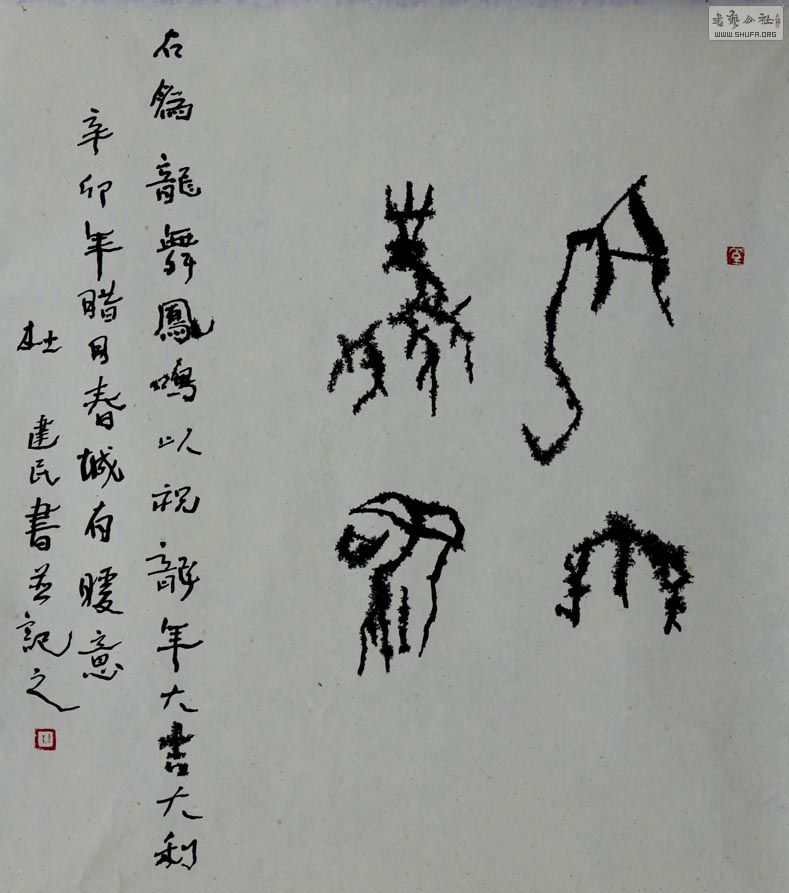 龍舞
鳳鳴
右為龍舞鳳鳴以祝龍年大吉大利
辛卯年腊月春城有暖意
杜建民書並記之
書藝公社
WWW.SHUFA.ORG